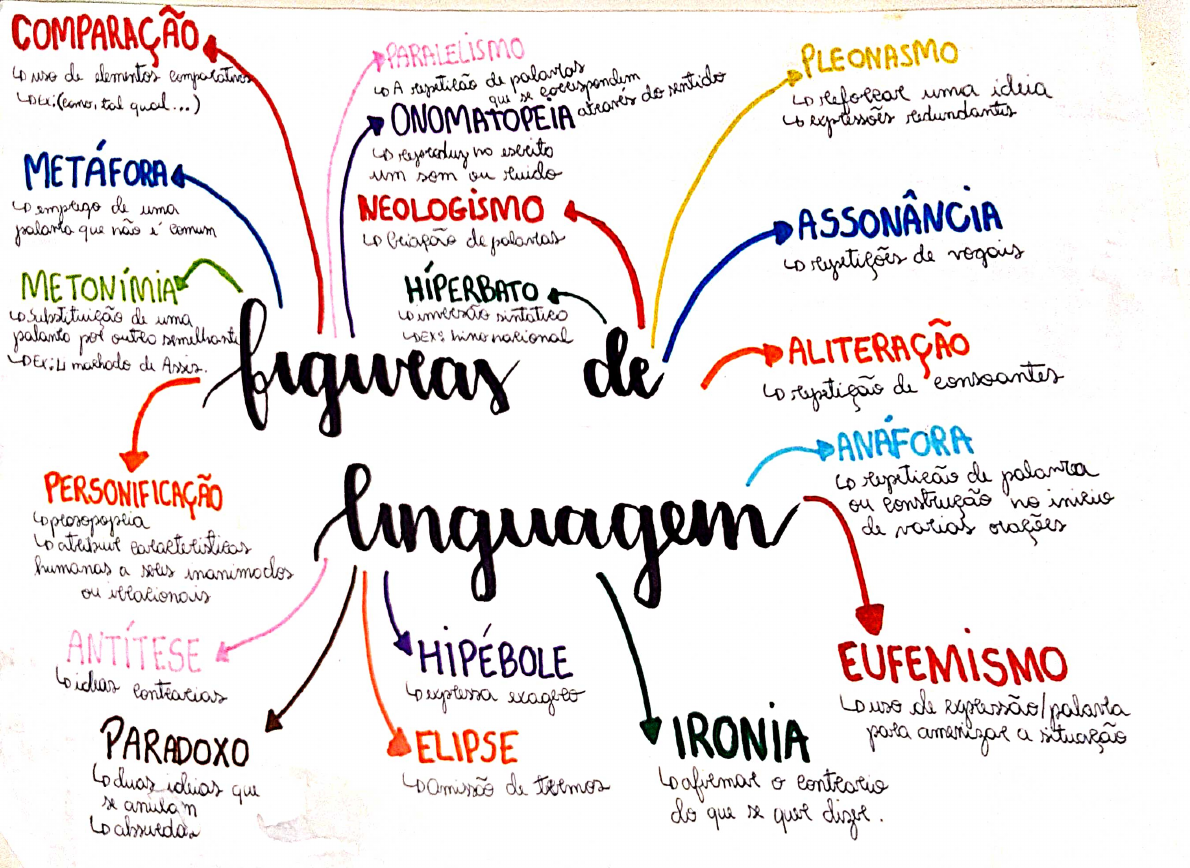 COMPARAÇÃO
↳ uso de elementos comparativos
↳ Ex: (como, tal qual...)
METÁFORA
↳ emprego de uma
palavra que não é comum
METONÍMIA
↳ substituição de uma
palavra por outro semelhante
↳ Ex: Li machado de Assis.
PARALELISMO
↳ A repetição de palavras
que se correspondem
através do sentido
ONOMATOPEIA
↳ reproduz no escrito
um som ou ruido
NEOLOGISMO
↳ Criação de palavras
HÍPERBATO
↳ inversão sintático
↳ EXS hino nacional
PLEONASMO
↳ reforçar uma ideia
↳ expressões redundantes
ASSONÂNCIA
↳ repetições de vogais
ALITERAÇÃO
↳ repetição de consoantes
figuras de
linguagem
ANÁFORA
↳ repetição de palavra
ou construção no inicio
de varias orações
PERSONIFICAÇÃO
↳ prosopopeia
↳ atribuir caracteristicas
humanas a seres inanimados
ou irracionais
ANTÍTESE
↳ ideias contrarias
PARADOXO
↳ duas ideias que
se anulam
↳ absurda
HIPÉBOLE
↳ expressa exagero
ELIPSE
↳ omissão de termos
IRONIA
↳ afirmar o contrario
do que se quer dizer.
EUFEMISMO
↳ uso de expressão/palavra
para amenizar a situação